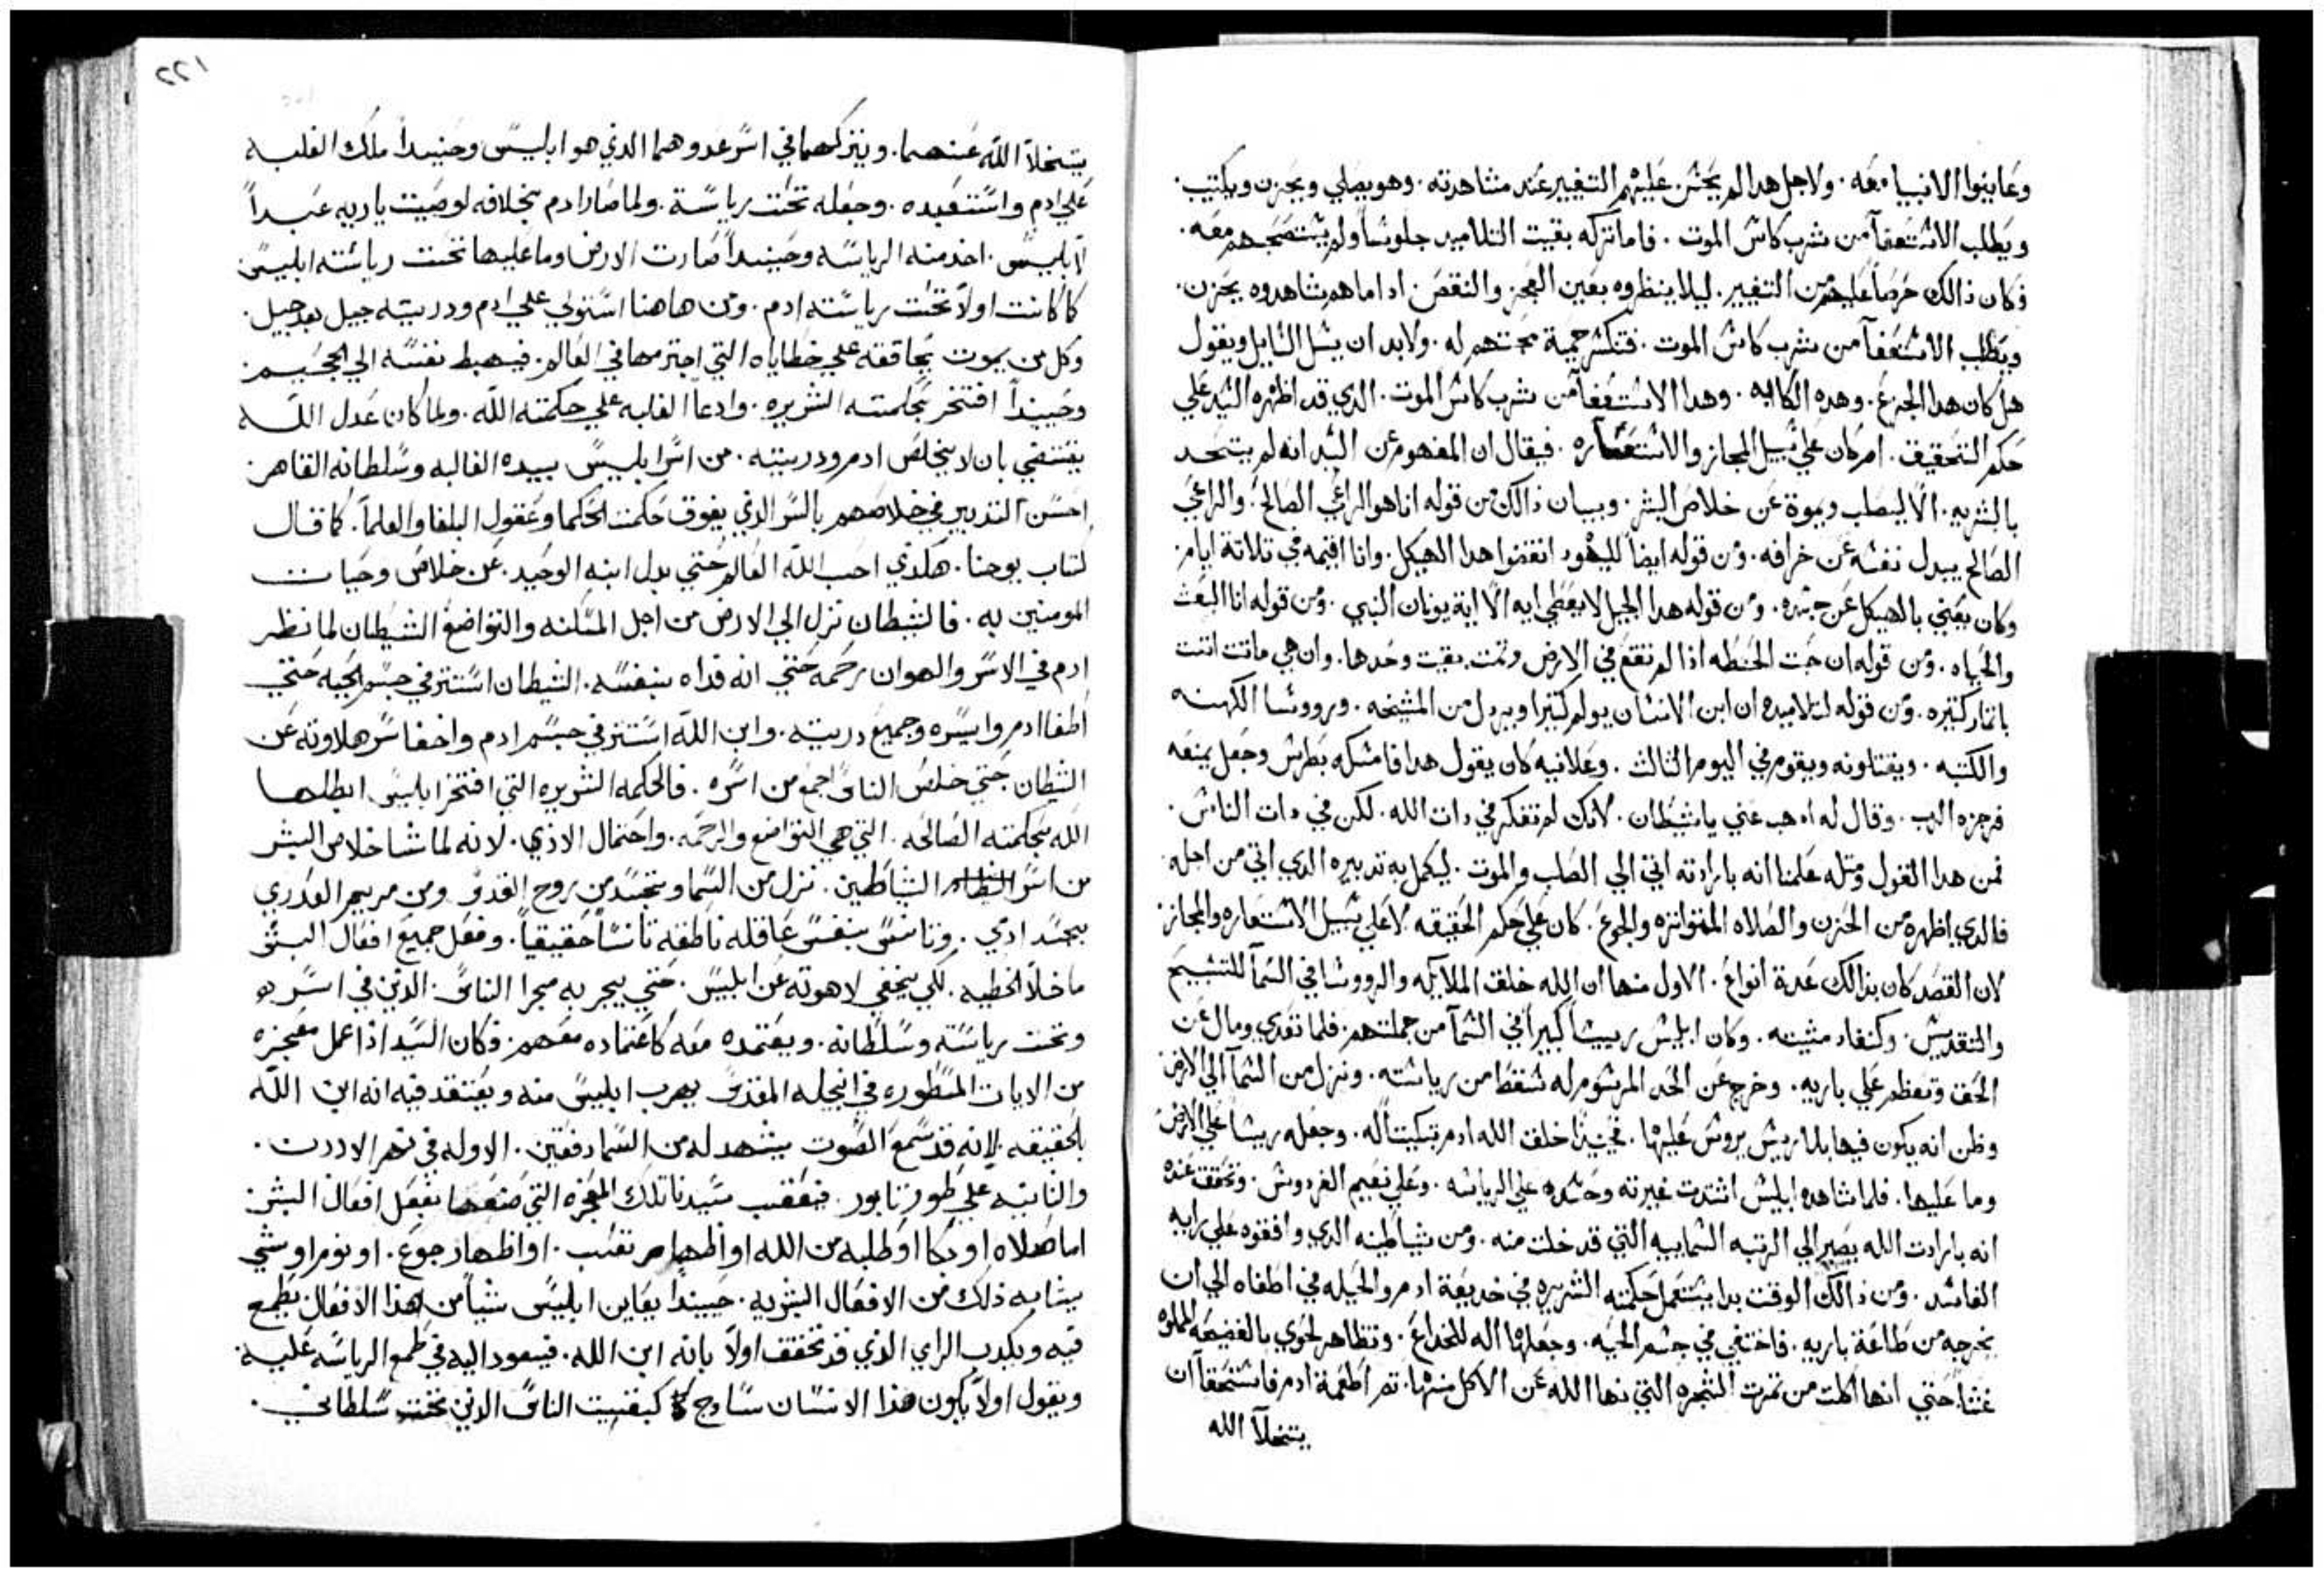 وعاينوا الانبيا معه. ولاجل هدا لم يخش عليهم التغيير عند مشاهدته. وهو يصلي ويحزن ويكتيب.
ويطلب الاستعفا من شرب كاس الموت. فاما تركه بقيت التلاميد جلوساً ولم يستصحبهم معه.
فكان ذالك حرصاً عليهم من التغيير. ليلا ينظروه بعين العجز والنقص. ادا ماهم شاهدوه يحزن.
ويطلب الاستعفا من شرب كاس الموت. فتكسر حمية محبتهم له. ولابد ان يسل السايل ويقول
هل كان هدا الجزع. وهده الكابه. وهدا الاستعفا من شرب كاس الموت. الدي قد اظهره السيد علي
حكم التحقيق. ام كان علي سبيل المجاز والاستعاره. فيقال ان المفهوم عن السيد انه لم يتحد
بالبشريه. الا ليصلب ويموة عن خلاص البشر. وبيان ذالك من قوله انا هو الراعي الصالح. والراعي
الصالح يبدل نفسه عن خرافه. ومن قوله ايضاً لليهود انقضوا هدا الهيكل. وانا اقيمه في تلاتة ايام.
وكان يعني بالهيكل عن جسده. ومن قوله هدا الجيل لا يعطي ايه الا اية يونان النبي. ومن قوله انا البعث
والحياه. ومن قوله ان حبت الحنطه اذا لم تقع في الارض وتمت بقيت وحدها. وان هي ماتت اتت
باتمار كتيره. ومن قوله لتلاميده ان ابن الانسان يولم كتيرا ويردل من المشيخه. وروسا الكهنه
والكتبه. ويقتلونه ويقوم في اليوم الثالث. وعلانيه كان يقول هدا فامسكه بطرس وجعل يمنعه
فزجره الرب. وقال له ادهب عني ياشيطان. لانك لم تفتكر في دات الله. لكن في دات الناس.
فمن هدا القول ومتله علمنا انه بارادته اتي الي الصلب والموت. ليكمل به تدبيره الدي اتي من اجله
فالدي اظهره من الحزن والصلاه المتواتره والجزع. كان علي حكم الحقيقه لا علي سبيل الاستعاره والمجاز.
لان القصد كان بذالك عدة انواع. الاول منها ان الله خلق الملايكه والروسا في السما للتسبيح
والتقديس. وكنفاد مشيته. وكان ابليس رييساً كبيراً في السما من جملتهم. فلما تعدي ومال عن
الحق وتعظم علي باريه. وخرج عن الحد المرسوم له سقط من رياسته. ونزل من السما الي الارض
وظن انه يكون فيها بلا رييس يروس عليها. فحينيدا خلق الله ادم تبكيتاً له. وجعله رييساً علي الارض
وما عليها. فلما شاهده ابليس اشتدت غيرته وحسده علي الرياسه. وعلي نعيم الفردوس. وتحقق عنده
انه بارادت الله يصير الي الرتبه السماييه التي قد خلت منه. ومن شياطينه الدي وافقوه علي رايه
الفاسد. ومن ذالك الوقت بدا يستعمل حكمته الشريره في خديعة ادم والحيله في اطغاه الي ان
يخرجه من طاعة باريه. فاختفي في جسم الحيه. وجعلها اله للخداع. وتظاهر لحوي بالنصيحه المملوه
غشاً. حتي انها اكلت من تمرت الشجره التي نهاا الله عن الاكل منها. تم اطعمة ادم فاستحقا ان
يتخلا الله
١٢٢
يتخلا الله عنهما. ويتركهما في اسر عدوهما الذي هو ابليس وحينيداً ملك الغلبه
علي ادم واستعبده. وجعله تحت رياسة. ولما صار ادم بخلافه لوصيت باريه عبداً
لابليس. اخد منه الرياسه وحينيداً صارت الارض وما عليها تحت رياسته ابليس
كما كانت اولاً تحت رياسته ادم. ومن هاهنا استولي علي ادم ودريته جيل بعد جيل.
وكل من يموت يحاققه علي خطاياه التي اجترمها في العالم. فيهبط نفسه الي الجحيم.
وحينيداً افتخر بحكمته الشريره. وادعا الغلبه علي حكمته الله. ولما كان عدل الله
يقتضي بان لا يخلص ادم ودريته. من اسر ابليس بيده الغالبه وسلطانه القاهر.
احسن التدبير في خلاصهم بالسر الذي يفوق حكمت الحكما وعقول البلغا والعلما. كما قال
كتاب يوحنا. هكذي احب الله العالم حتي بدل ابنه الوحيد. عن خلاص وحيات
المومنين به. فالشيطان نزل الي الارض من اجل المسكنه والتواضع الشيطان لما نظر
ادم في الاسر والهوان رحمه حتي انه فداه بنفسه. الشيطان استتر في جسم الحيه حتي
اطغا ادم واسره وجميع دريته. وابن الله استتر في جسم ادم واخفا سر هلاوته عن
الشيطان حتي خلص الناس اجمع من اسره. فالحكمه الشريره التي افتخر ابليس ابطلها
الله بحكمته الصالحه. التي هي التواضع والرحمه. واحتمال الاذي. لانه لما شا خلاص البشر
من اسر الشياطين. نزل من السما وتجسد من روح القدس ومن مريم العدري
بجسد ادمي. وتانس بنفس عاقله ناطقه تانساً حقيقياً. وفعل جميع افعال البشر
ما خلا الخطيه. لكي يخفي لاهوته عن ابليس. حتي يجر به مجرا الناس. الذين في اسره
وتحت رياسته وسلطانه. ويعتمده معه كاعتماده معهم. وكان السيد اذا عمل معجزه
من الايات المسطوره في انجيله المقدس يهرب ابليس منه ويعتقد فيه انه ابن الله
بالحقيقه لانه قد سمع الصوت يشهد له من السما دفعتين. الاوله في نهر الاردن.
والثانيه علي طور تابور. فيعقب سيدنا تلك المعجزه التي صنعها بفعل افعال البشر.
اما صلاه او بكا او طلبه من الله او اظهار تعب. او اظهار جوع. او نوم او شي
يشابه ذلك من الافعال البشريه. حينيداً يعاين ابليس شياً من هذا الافعال. يطمع
فيه ويكدب الراي الذي قد تحقق اولاً بانه ابن الله. فيعود اليه في طمع الرياسه عليه
ويقول اولاً يكون هذا الانسان سادج كبقيت الناس الدين تحت سلطاني.